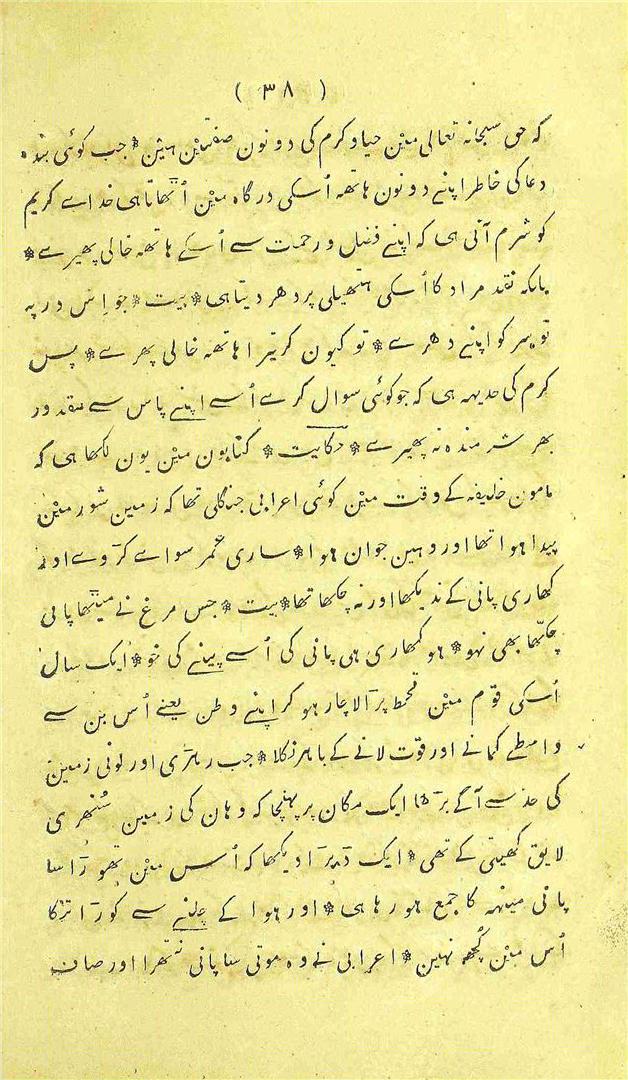 ( ۳۸ )
که حق سبحانہ تعالی مین حیا و کرم کی دونون صفتین ہین * جب کوئی بندہ
دعا کی خاطر اپنے دونون ہاتھہ اُسکی درگاہ مین اُٹھاتا ہی خداے کریم
کو شرم آتی ہی کہ اپنے فضل و رحمت سے اُسکے ہاتھہ خالی پھیرے *
بلکہ نقد مراد کا اُسکی ہتھیلی پر دھر دیتا ہی * بیت * جو اِس در پہ
تو سر کو اپنے دھرے * تو کیون کر تیرا ہاتھہ خالی پھرے * پس
کرم کی حد یہہ ہی کہ جو کوئی سوال کرے اُسے اپنے پاس سے مقدور
بھر شرمندہ نہ پھیرے * حکایت * کتابون مین یون لکھا ہی کہ
مامون خلیفہ کے وقت مین کوئی اعرابی جنگلی تھا کہ زمین شور مین
پیدا ہوا تھا اور وہین جوان ہوا * ساری عمر سواے کڑوے اور
کھاری پانی کے ندیکھا اور نہ چکھا تھا * بیت * جس مرغ نے میٹھا پانی
چکھا بھی نہو * ہو کھاری ہی پانی کی اُسے پینے کی خو * ایک سال
اُسکی قوم مین قحط پڑا لاچار ہو کر اپنے وطن یعنے اُس بن سے
واسطے کمانے اور قوت لانے کے باہر نکلا * جب ریتڑی اور لونی زمین
کی حد سے آگے بڑھا ایک مکان پر پہنچا کہ وہان کی زمین سُتھری
لایق کھیتی کے تھی * ایک ڈبرا دیکھا کہ اُس مین تھوڑا سا
پانی مینہہ کا جمع ہو رہا ہی * اور ہوا کے چلنے سے کوڑا تڑکا
اُس مین کُچھہ نہین * اعرابی نے وہ موتی سا پانی نتھرا اور صاف